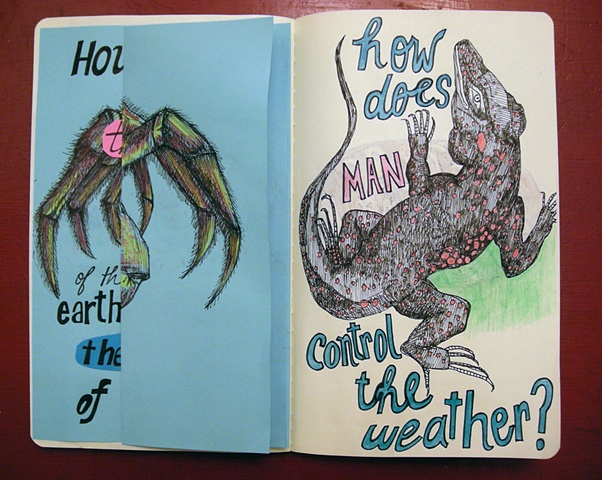 HO
t
of th
earth
the
of
how
does
MAN
control
the
weather?